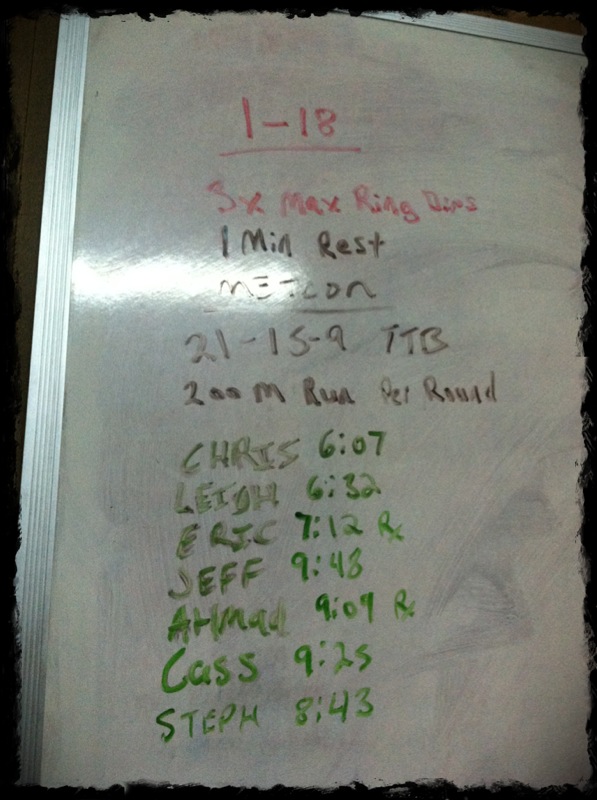 1-18
3x Max Ring Dips
1 Min Rest
METCON
21-15-9 TTB
200 M Run Per Round
CHRIS 6:07
LEIGH 6:32
ERIC 7:12 Rx
JEFF 9:48
AHMAD 9:09 Rx
Cass 9:25
STEPH 8:43